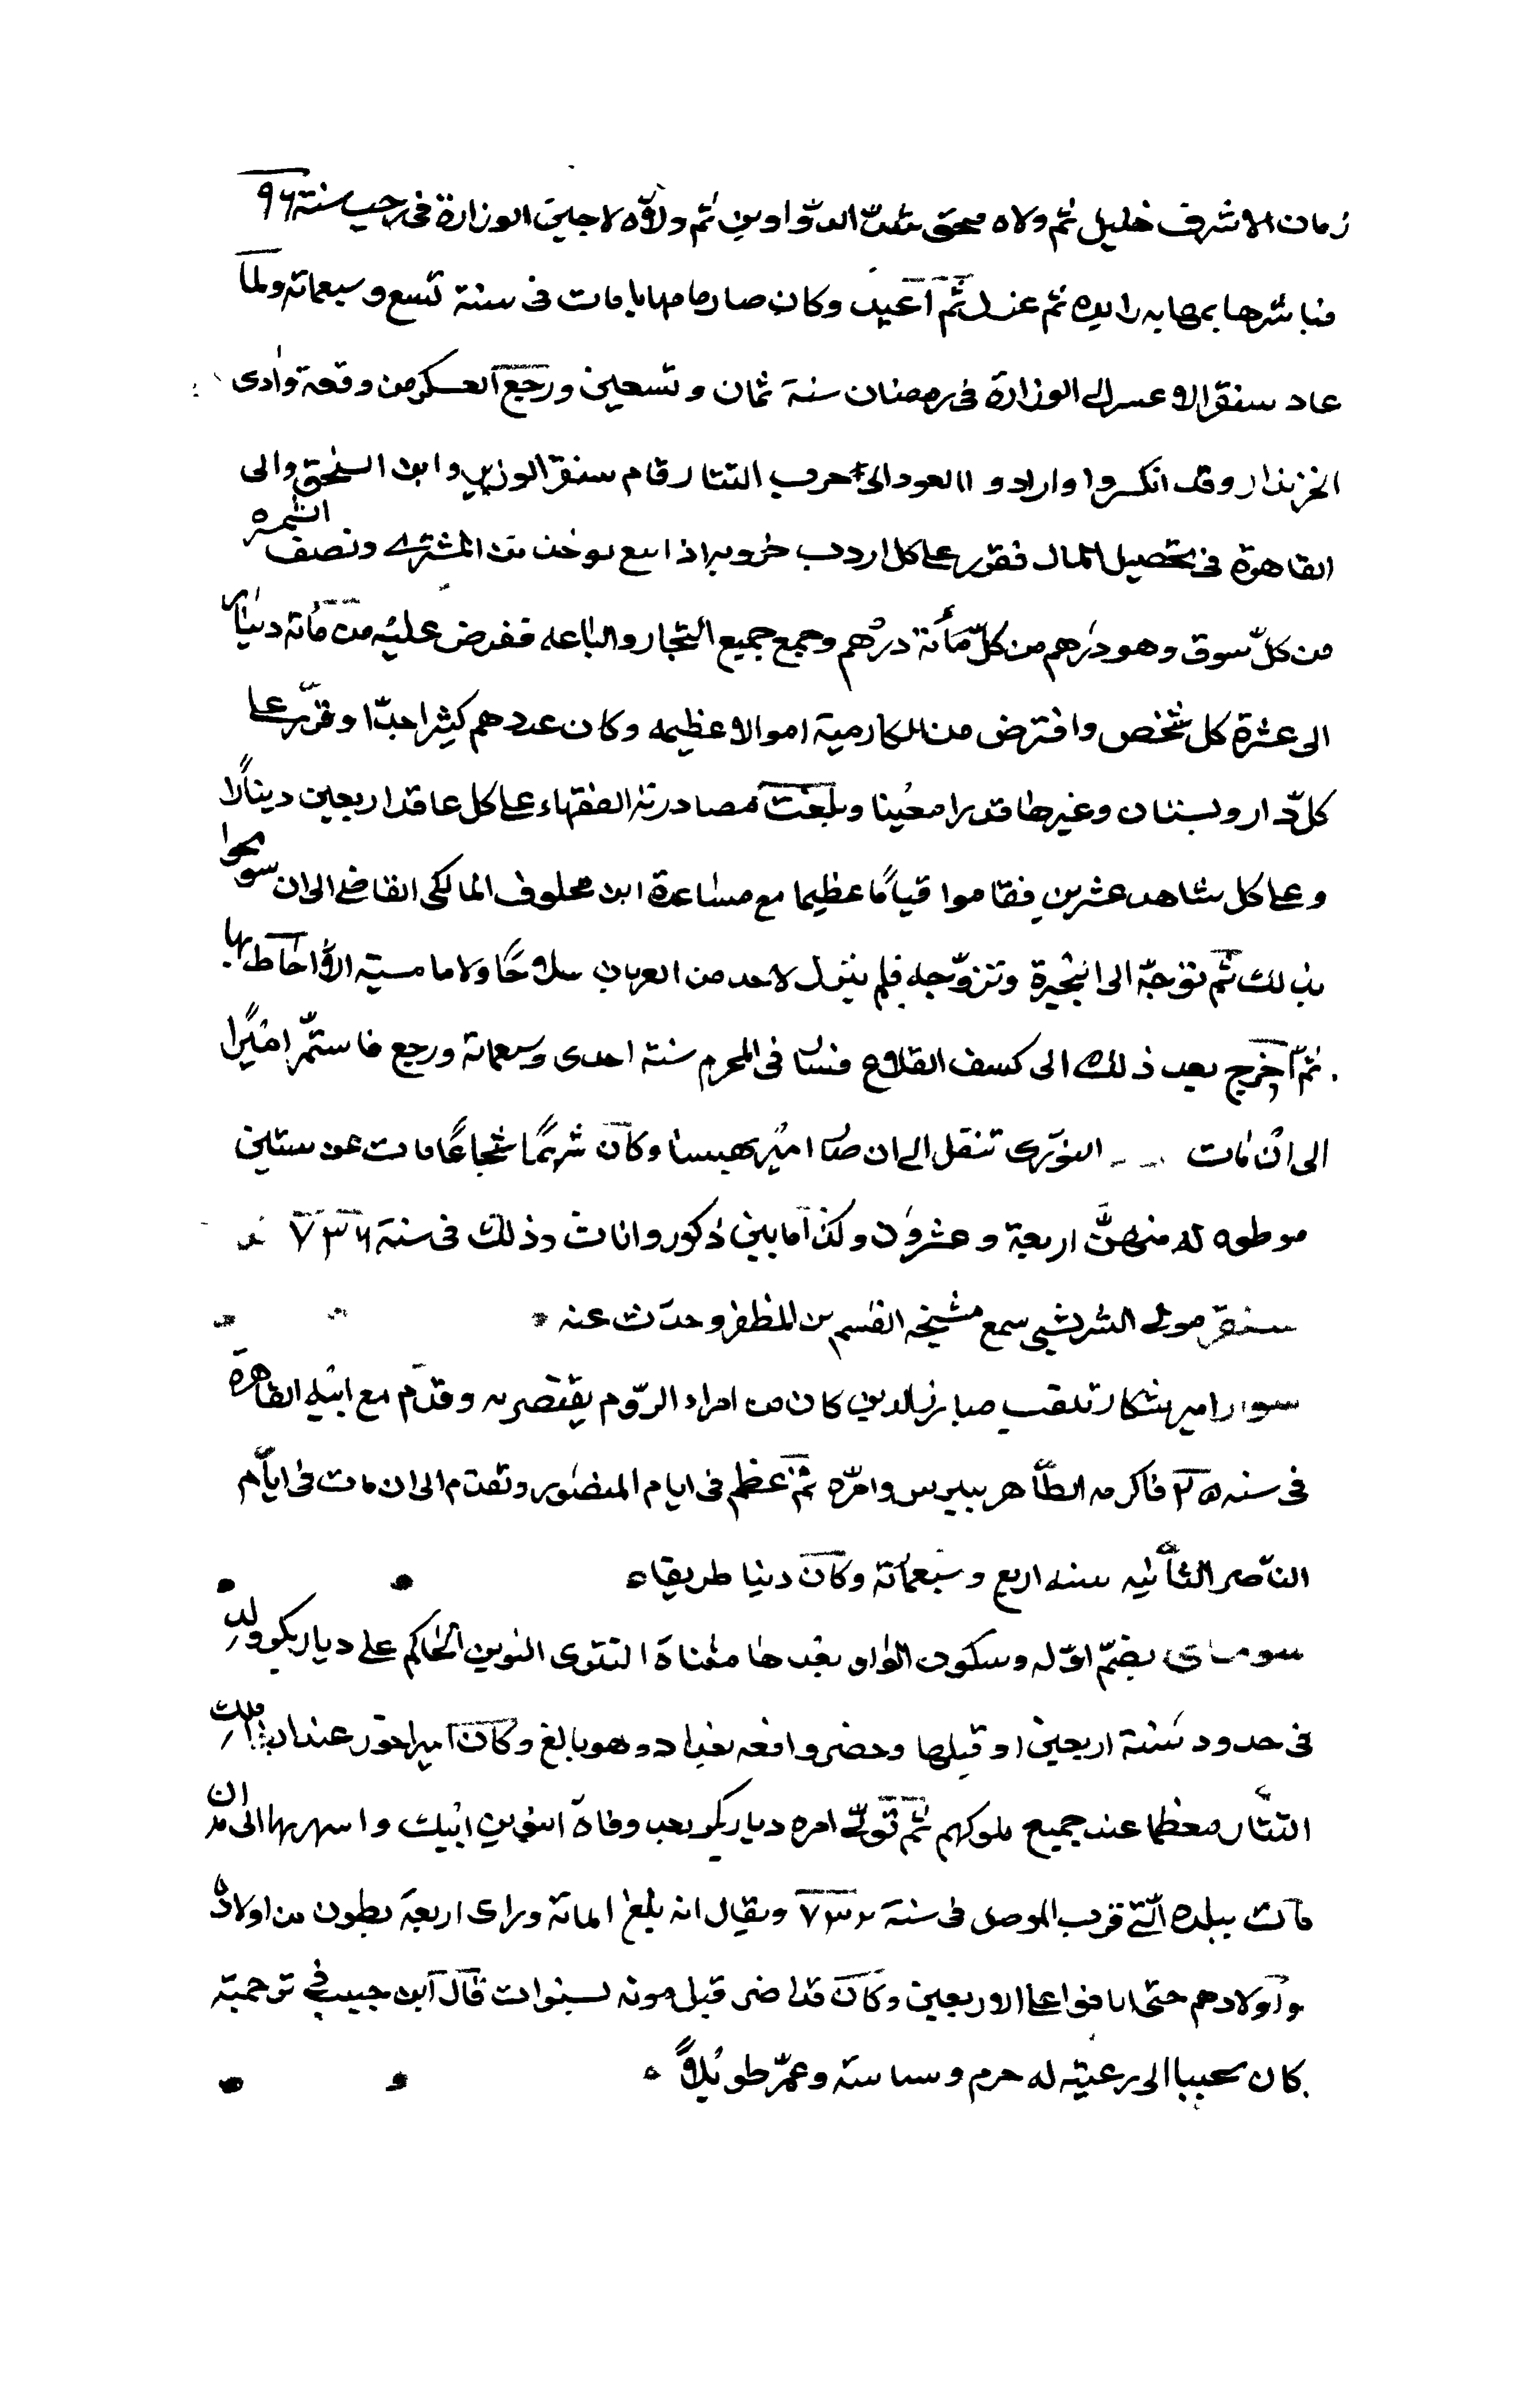 زمان الاشرف خليل ثم ولاه شدّ الدّواوين ثم ولّاه لاجين الوزارة فى رجب سنة ٩٦
فباشرها بمهابه زايده ثم عزل ثم اعيد وكان صارما مهابا مات فى سنة تسع وسبعمائة ولما
عاد سنقر الاعسر الى الوزارة فى رمضان سنة ثمان وتسعين ورجع العسكر من وقعة وادى
الخزندار وقد انكسروا وارادوا العود الى حرب التتار قام سنقر الوزير وابن والى
القاهرة فى تحصيل المال فقرر على كل اردب خروبه اذا ابيع توخذ من المشترى ونصف السمسره
من كلّ سوق وهو درهم من كلّ مأئة درهم وجمع جميع التجار والباعه ففرض عليه من مائة دينار
الى عشرة كل شخص واقترض من الكارمية اموالا عظيمه وكان عددهم كثيرا جدّا وقرّر على
كلّ دار وبستان وغيرها قدرا معينا وبلغت مصادرته الفقهاء على كل عاقد اربعين دينارًا
وعلى كل شاهد عشرين فقاموا قيامًا عظيما مع مساعدة ابن مخلوف المالكى القاضى الى ان سومحوا
بذلك ثم توجّه الى البحيرة فلم يترك لاحد من العربان سلاحًا ولا ماسية الّا احاط بها
ثم اخرج بعد ذلك الى كسف القلاع فسار فى المحرم سنة احدى وسبعمائة ورجع فاستمّر اميرًا
الى ان مات النورى تنقل الى ان صار امير بهسنا وكان شهمًا شجاعًا مات عن ستين
موطوه له منهنّ اربعة وعشرون ولدًا ما بين ذكور واناث وذلك فى سنة ٧٣٦
سنقر مولى سمع مشيخه القسم بن المظفر وحدّث عنه
سوار امير شكار تلقب صبارز الدين كان من امراء الرّوم بقيصريه وقدّم مع ابنيه القاهرة
فى سنه فاكرمه الظّاهر بيبرس وامّره ثم عظم فى ايام المنصور وتقدّم الى ان مات فى ايّام
النّاصر الثانيه سنه اربع وسبعمائة وكان دينا طريفاء
بضمّ اوّله وسكون الواو بعدها مثناة التتوى النوين الحاكم على ديار بكر ولد
فى حدود سنة اربعين او قبلها وحضر واقعه بغداد وهو بالغ وكان اميراخور عند ابغا ملك
التتار معظما عند جميع ملوكهم ثم تولّى امره ديار بكر بعد وفاة النوين ابنيك واسهر بها الى ان
مات ببلده الّتى قرب الموصل فى سنة ٧٣٢ ويقال انه بلغ المائة وراى اربعة بطون من اولاده
واولادهم حتى انافوا على الاربعين وكان قد اضر قبل موته لسنوات قال ابن حبيب فى ترجمته
كان محببا الى رعيته له حزم وسياسة وعمّر طويلًا